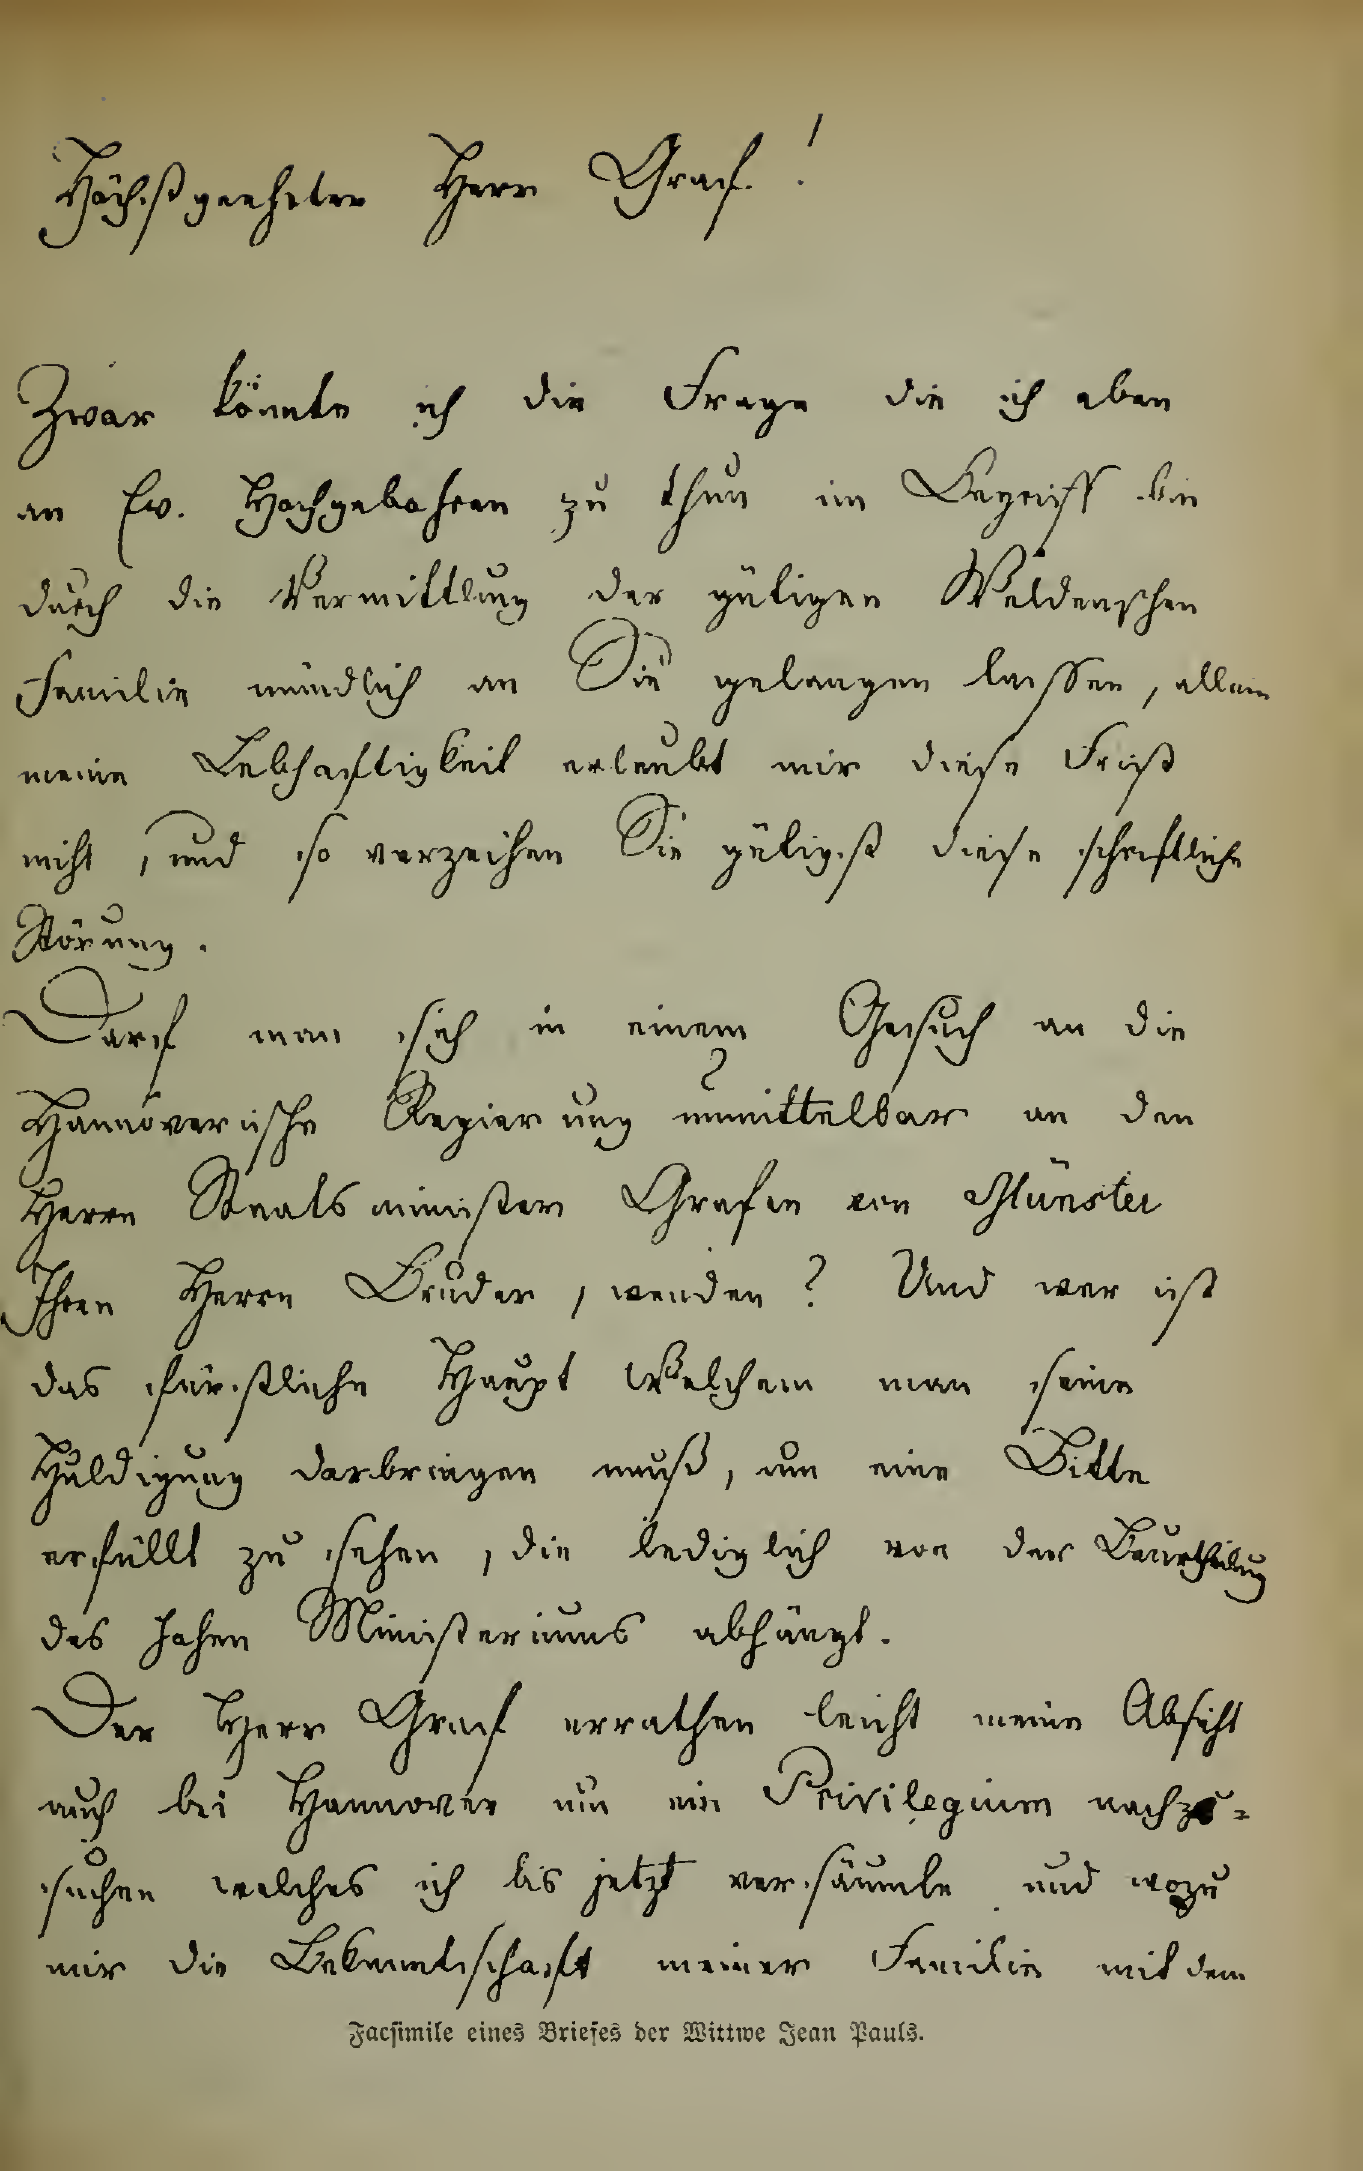 Höchstgeehrter Herr Graf!
Zwar könnte ich die Frage die ich eben
an Ew. Hochgebohren zu thun im Begriff bin
durch die Vermittlung der gütigen Weldenschen
Familie mündlich an Sie gelangen lassen, allein
meine Lebhaftigkeit erlaubt mir diese Frist
nicht, und so verzeihen Sie gütigst diese schriftliche
Störung.
Darf man sich in einem Gesuch an die
Hannöverische Regierung unmittelbar an den
Herrn Staatsminister Grafen von Münster
Ihren Herrn Bruder, wenden? Und wer ist
das fürstliche Haupt Welchem man seine
Huldigung darbringen muß, um eine Bitte
erfüllt zu sehen, die lediglich von der Beurtheilung
des hohen Ministeriums abhängt.
Der Herr Graf errathen leicht meine Absicht
auch bei Hannover um ein Privilegium nachzu=
suchen welches ich bis jetzt versäumte und wozu
mir die Bekanntschaft meiner Familie mit dem
Facsimile eines Briefes der Wittwe Jean Pauls.